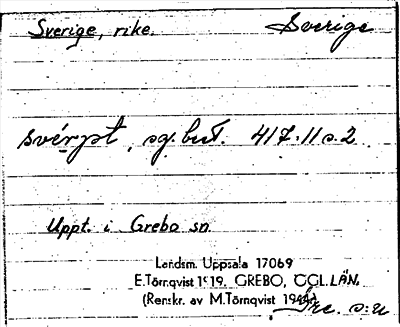 Sverige, rike. Sverige
svérpt, sg. but. 417.11 s. 2
Uppt. i Grebo sn
Landsm. Uppsala 17069
E.Törnqvist 1919. GREBO, ÖGL.LÄN.
(Renskr. av M.Törnqvist